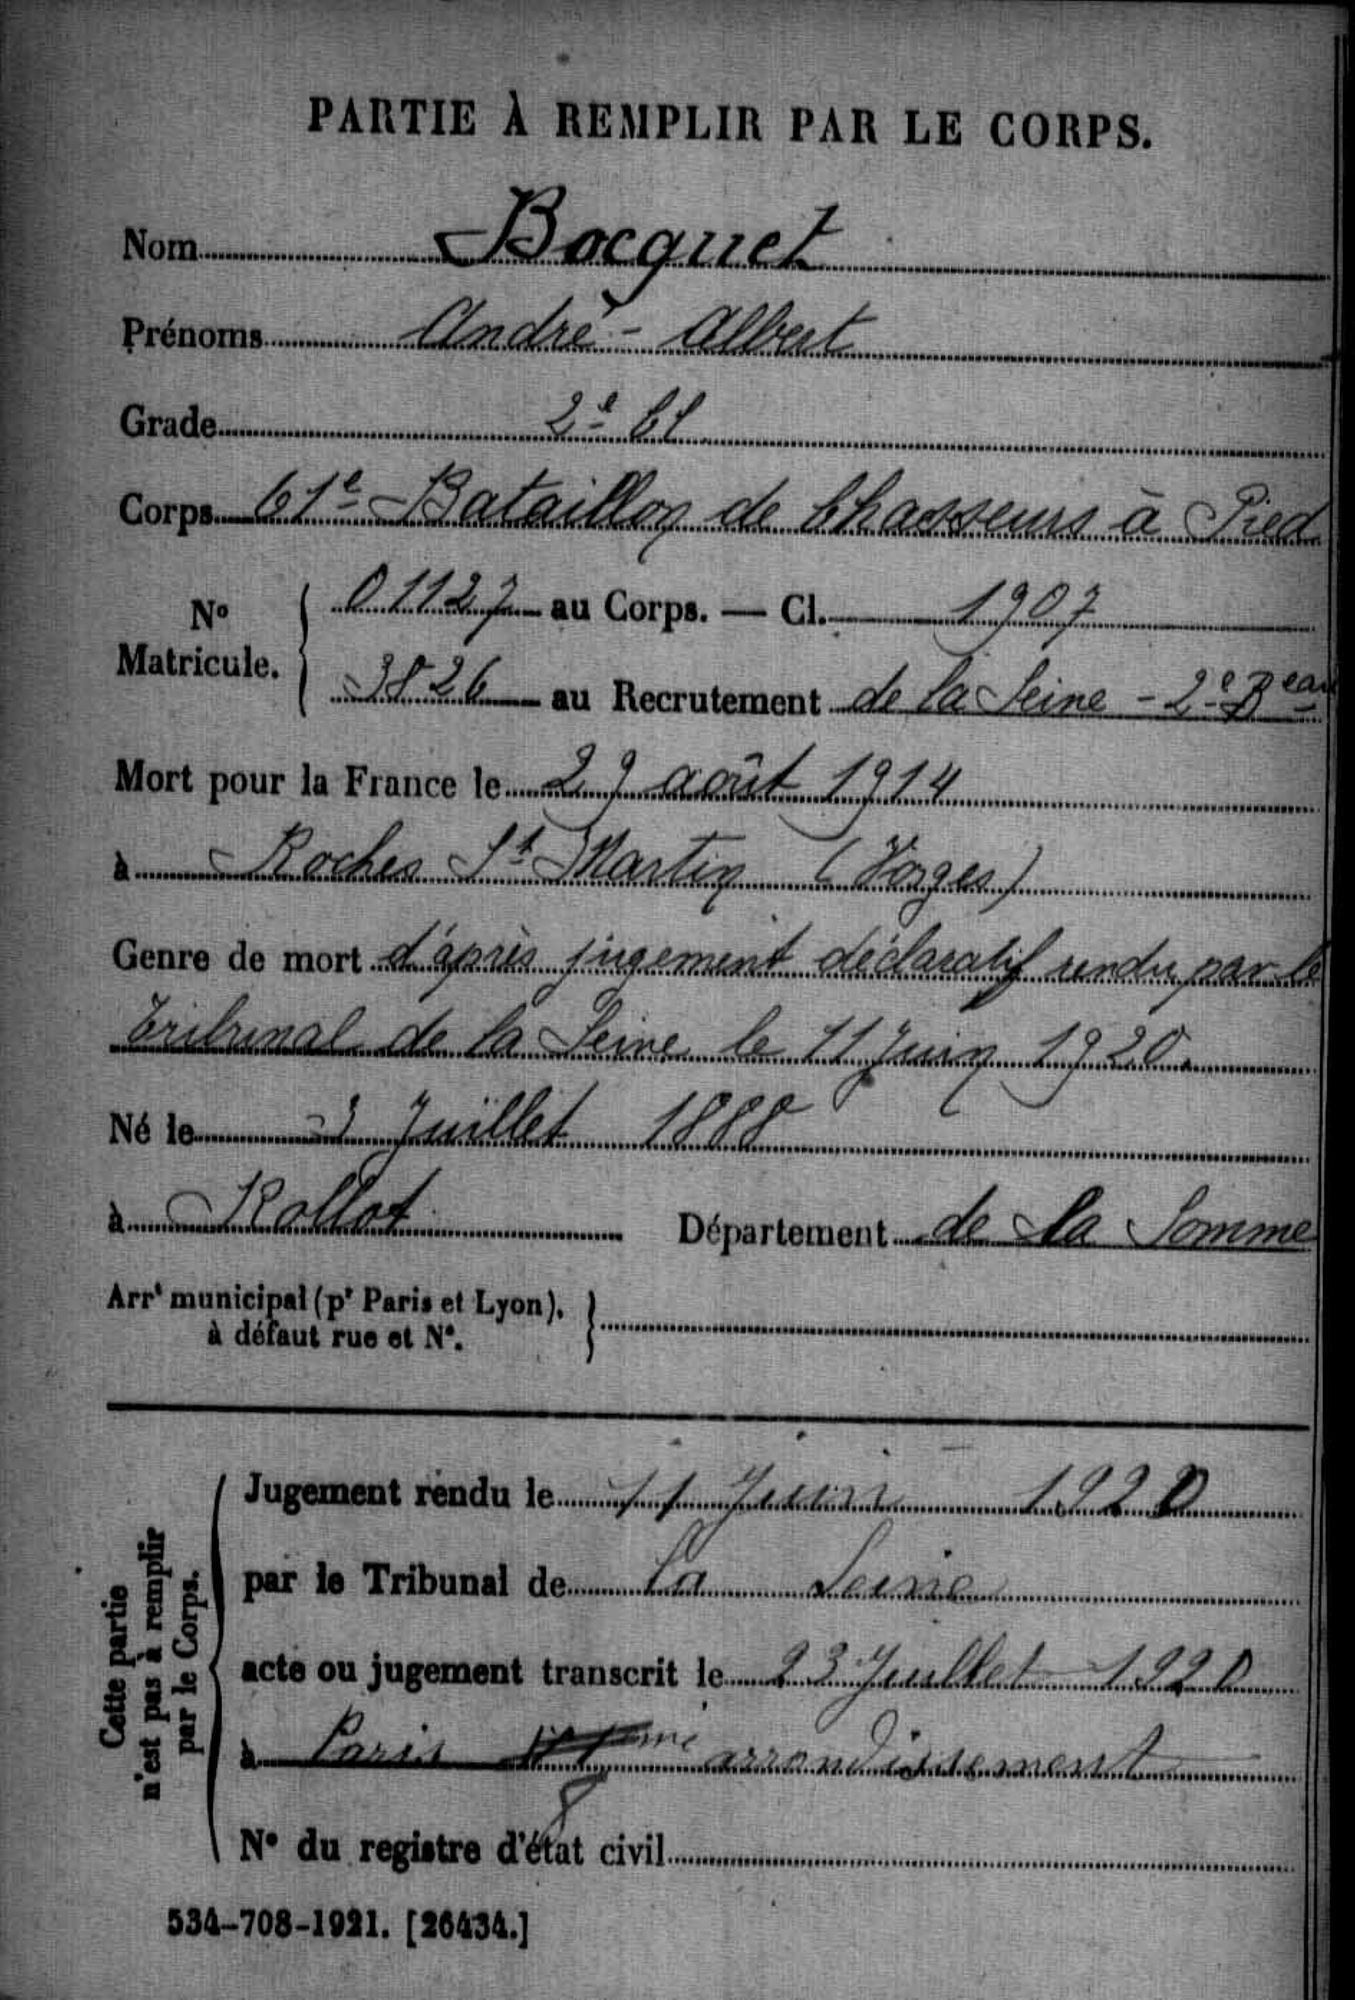 PARTIE À REMPLIR PAR LE CORPS.
Nom Bocquet
Prénoms André - Albert
Grade 2e Cl
Corps 61e Bataillon de Chasseurs à Pied
No Matricule. { 01127 au Corps. — Cl. 1907
3826 au Recrutement de la Seine - 2e Beau
Mort pour la France le 29 août 1914
à Roches St Martin (Vosges)
Genre de mort d'après jugement déclaratif rendu par le
Tribunal de la Seine le 11 Juin 1920.
Né le 3 Juillet 1888
à Rollot Département de la Somme
Arrt municipal (pr Paris et Lyon),
à défaut rue et No. }
Cette partie
n'est pas à remplir
par le Corps.
Jugement rendu le 11 Juin 1920
par le Tribunal de la Seine
acte ou jugement transcrit le 23 Juillet 1920
à Paris eme arrondissement
8
No du registre d'état civil
534-708-1921. [26434.]